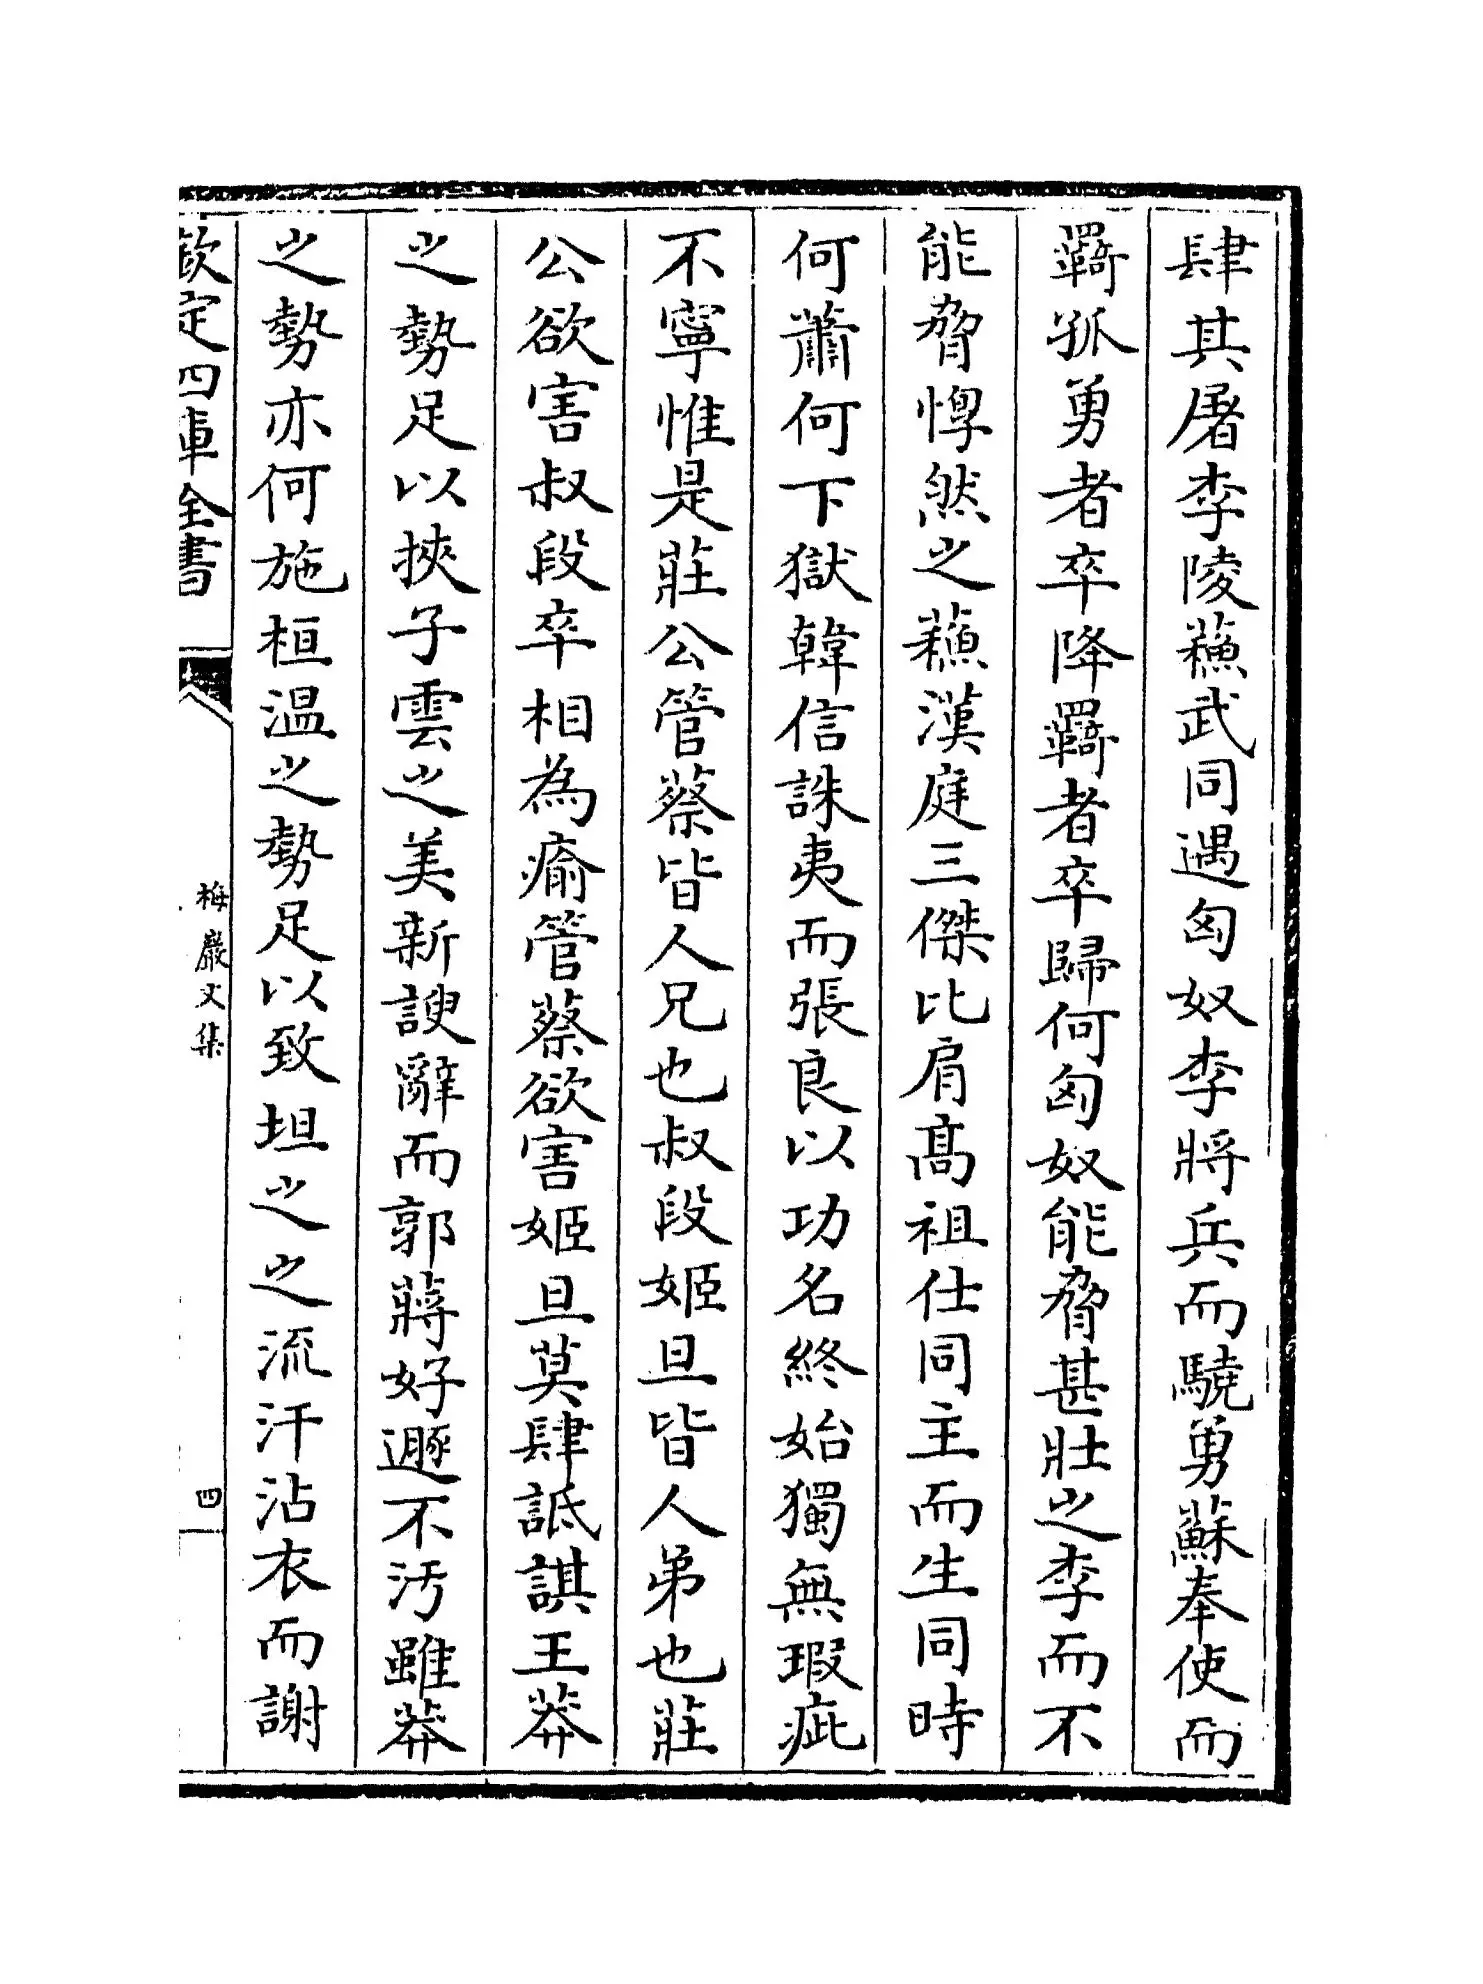 肆其屠李陵蘓武同遇匈奴李將兵而驍勇蘇奉使而
羇孤勇者卒降羇者卒歸何匈奴能脅甚壯之李而不
能脅惸然之蘓漢庭三傑比肩髙祖仕同主而生同時
何蕭何下獄韓信誅夷而張良以功名終始獨無瑕疵
不寧惟是莊公管蔡皆人兄也叔段姬旦皆人弟也莊
公欲害叔段卒相為瘉管蔡欲害姬旦莫肆詆諆王莽
之勢足以挾子雲之美新諛辭而郭蔣好遯不汚雖莽
之勢亦何施桓温之勢足以致坦之之流汗沾衣而謝
欽定四庫全書
梅巖文集
四